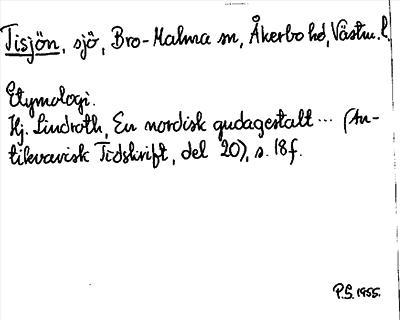 Tisjön, sjö, Bro-Malma sn, Åkerbo hd, Västm. l.
Etymologi.
Hj. Lindroth, En nordisk gudagestalt ... (An-
tikvarisk Tidskrift, del 20), s. 18f.
P.S. 1955.